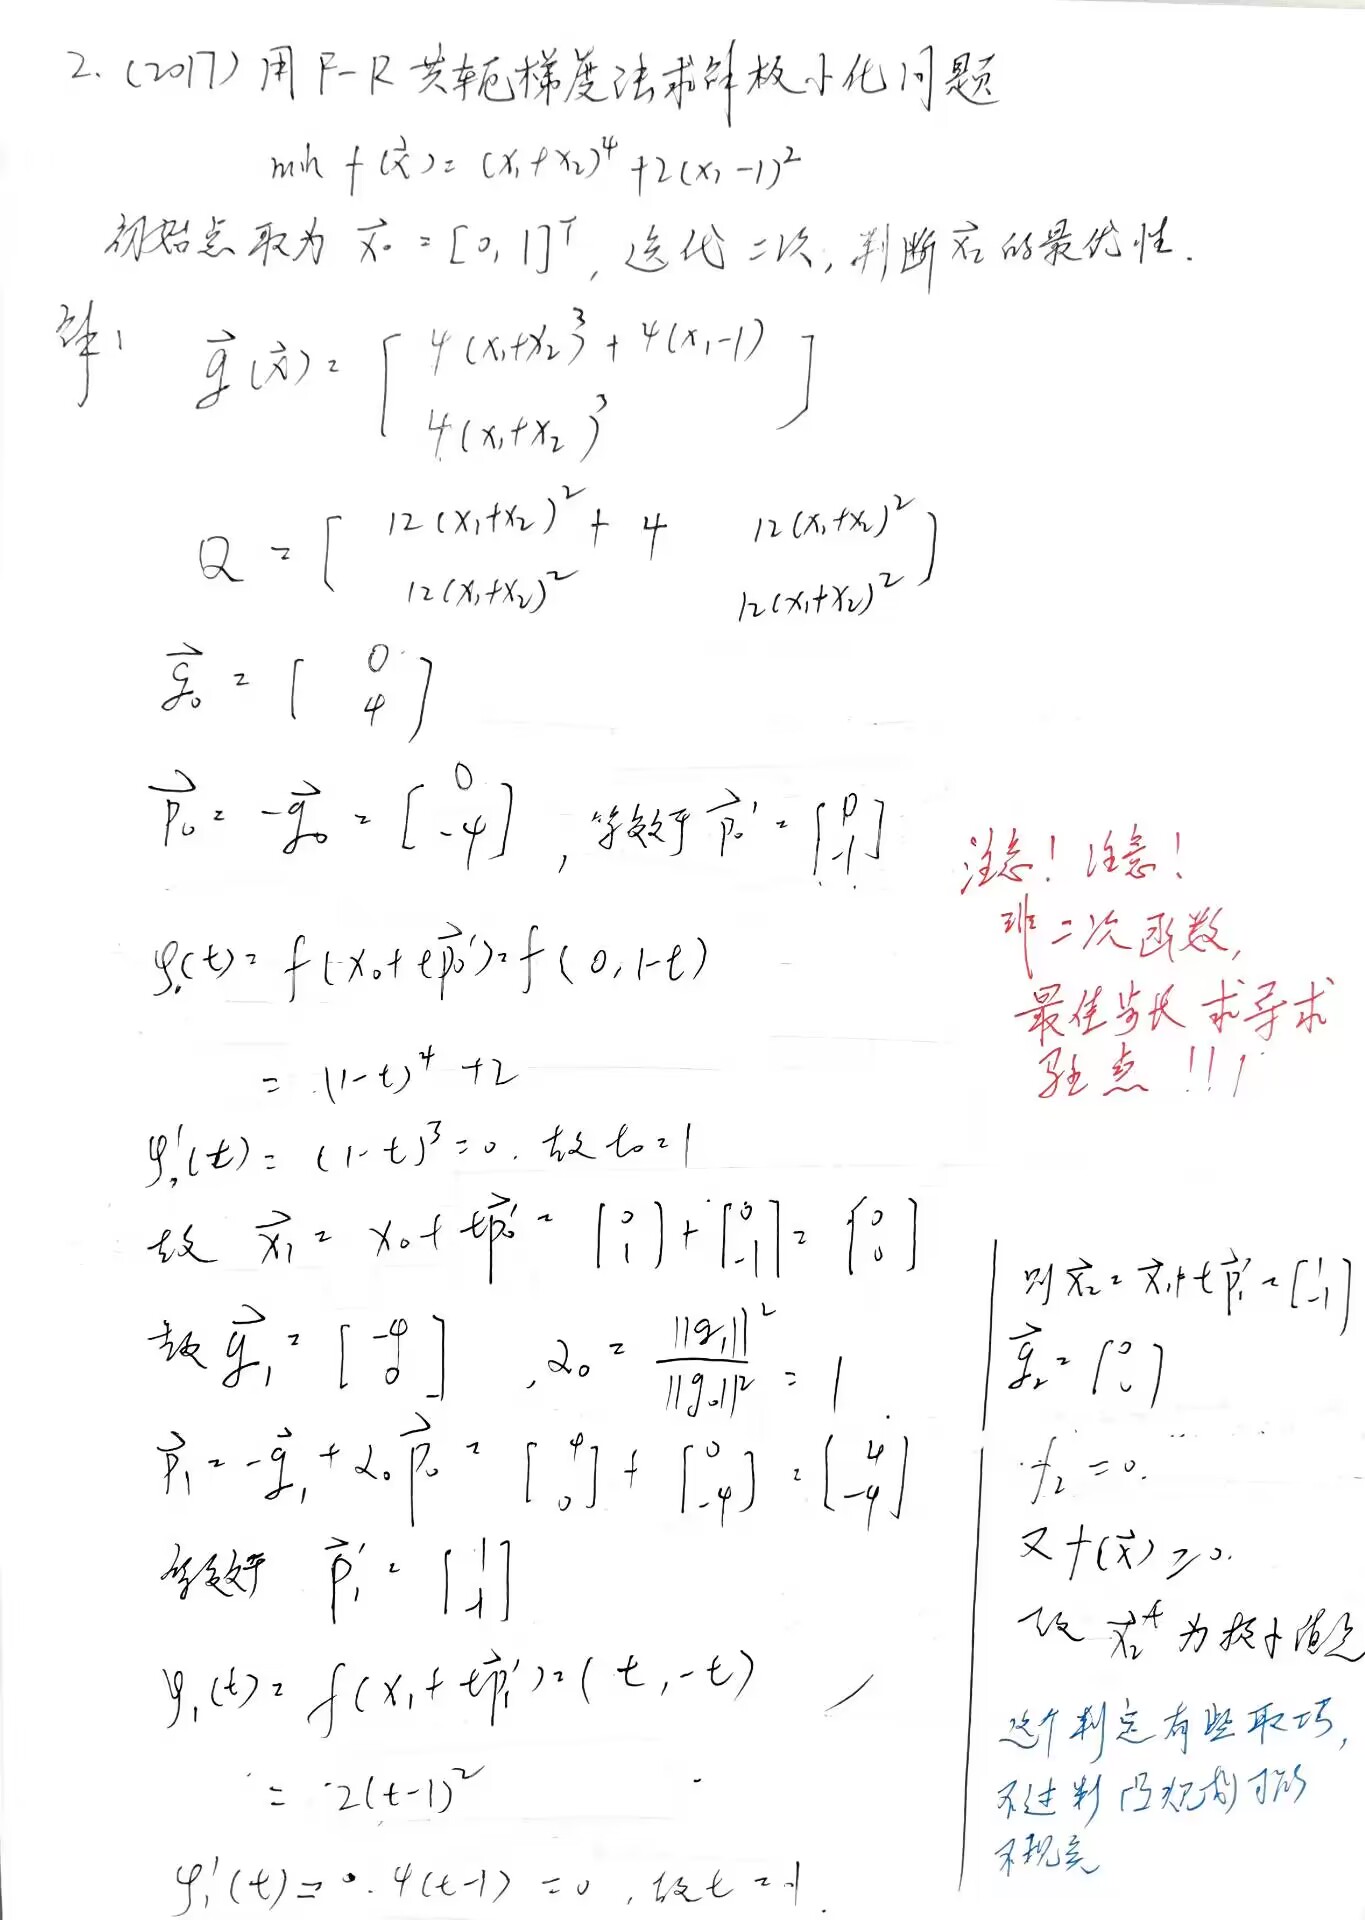 2. (2017) 用F-R共轭梯度法求解极小化问题
min f(x⃗) = (x₁+x₂)⁴ + 2(x₁-1)²
初始点取为 x⃗₀ = [0, 1]ᵀ, 迭代二次, 判断x⃗₂的最优性.
解:
g⃗(x⃗) = [ 4(x₁+x₂)³ + 4(x₁-1)
4(x₁+x₂)³ ]
Q = [ 12(x₁+x₂)² + 4 12(x₁+x₂)²
12(x₁+x₂)² 12(x₁+x₂)² ]
g⃗₀ = [ 0
4 ]
p⃗₀ = -g⃗₀ = [ 0
-4 ], 等效于 p⃗₀' = [ 0
-1 ]
φ₀(t) = f(x₀+tp⃗₀') = f(0, 1-t)
= (1-t)⁴ + 2
φ₀'(t) = (1-t)³ = 0. 故 t₀ = 1
故 x⃗₁ = x₀ + tp⃗₀' = [ 0
1 ] + [ 0
-1 ] = [ 0
0 ]
故 g⃗₁ = [ -4
0 ], α₀ = ||g₁||² / ||g₀||² = 1
p⃗₁ = -g⃗₁ + α₀p⃗₀ = [ 4
0 ] + [ 0
-4 ] = [ 4
-4 ]
等效于 p⃗₁' = [ 1
-1 ]
φ₁(t) = f(x₁+tp⃗₁') = (t, -t)
= 2(t-1)²
φ₁'(t) = 0. 4(t-1) = 0, 故 t = 1.
注意! 注意!
非二次函数,
最佳步长 求导求
驻点!!!
则 x⃗₂ = x⃗₁+tp⃗₁' = [ 1
-1 ]
g⃗₂ = [ 0
0 ]
f₂ = 0.
又 f(x⃗) ≥ 0.
故 x⃗₂* 为极小值点
这个判定有些取巧,
不过判凸规划可能
不现实